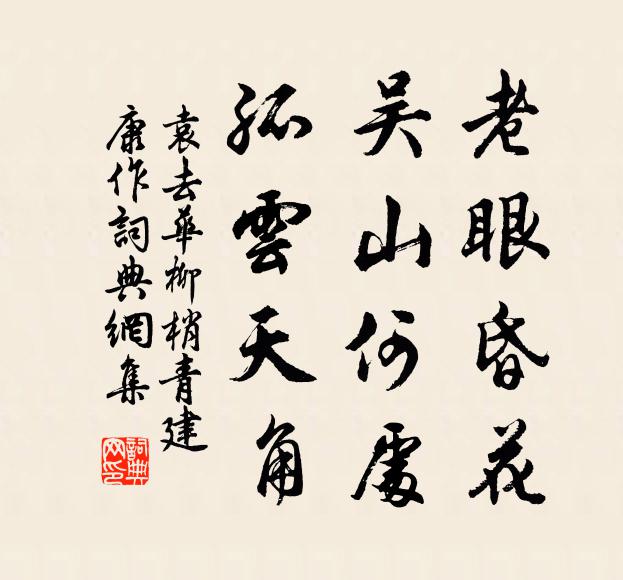 老眼昏花
吴山何處
孤雲天角
袁去華柳梢青建
康作詞典網集
詞典
网印